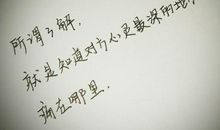 所谓了解，
就是知道对方心里最深的地方
痛在哪里。